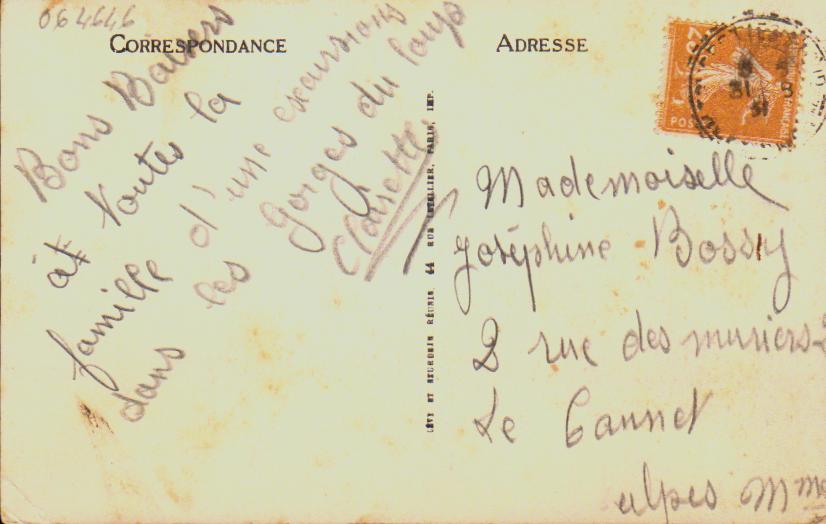 064646
CORRESPONDANCE
Bons Baisers
à toutes la
famille d'une excursions
dans les Gorges du loup
Claisette
LÉVY ET NEURDEIN RÉUNIS, 44 RUE LETELLIER, PARIS, IMP.
ADRESSE
Mademoiselle
Joséphine Bossy
2 rue des muriers
Le Cannet
alpes Mmes
25
POSTES
31
31